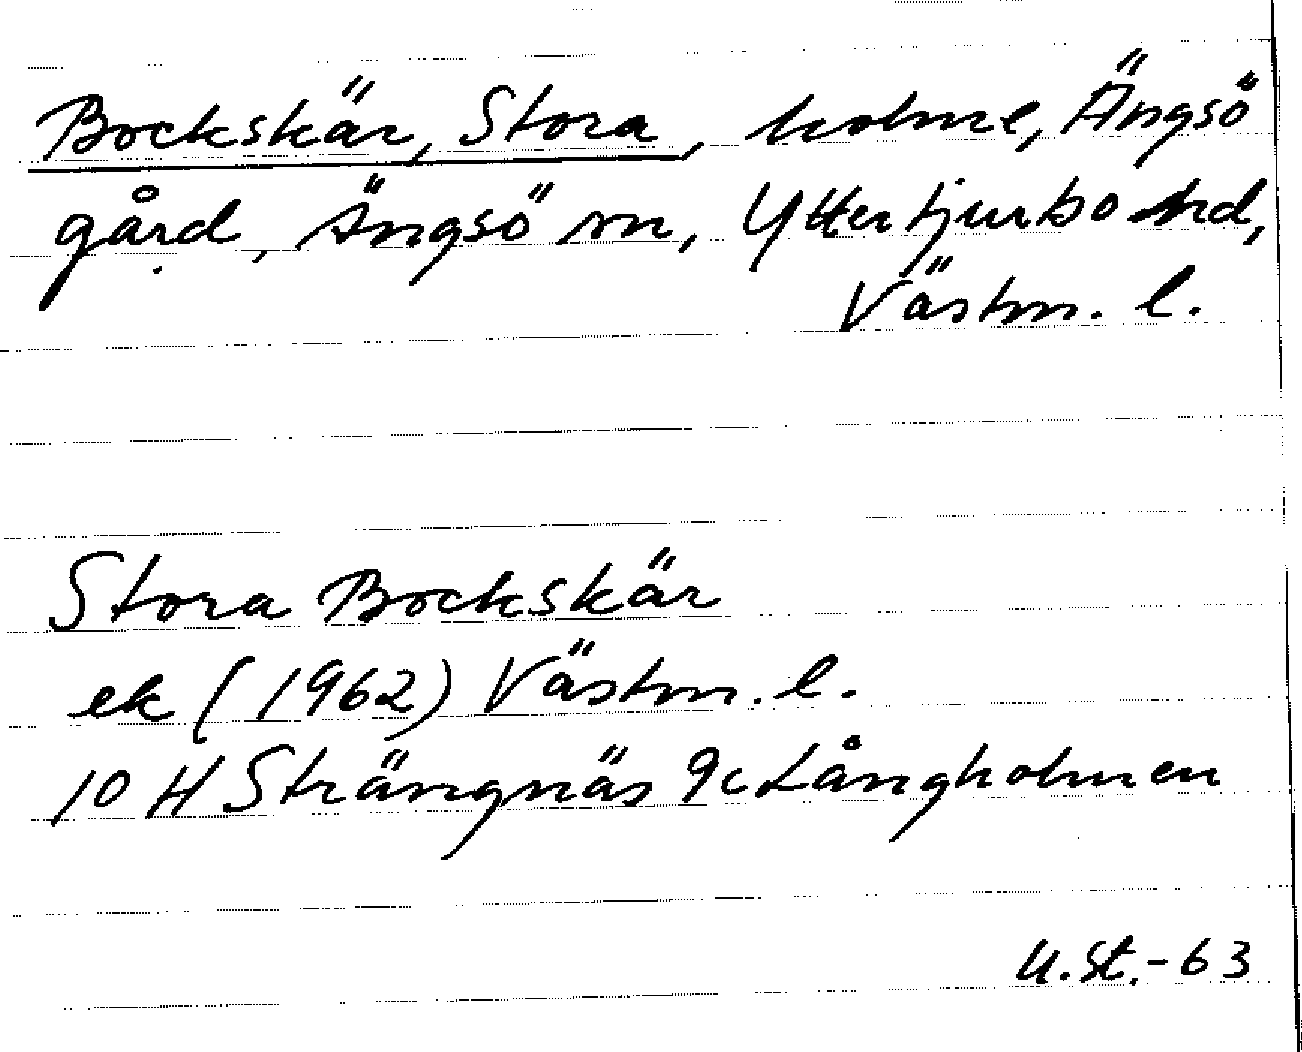 Bockskär, Stora, holme, Ängsö
gård, Ängsö sn, Yttertjurbo hd,
Västm. l.
Stora Bockskär
ek (1962) Västm. l.
10 H Strängnäs 9c Långholmen
U.St.-63